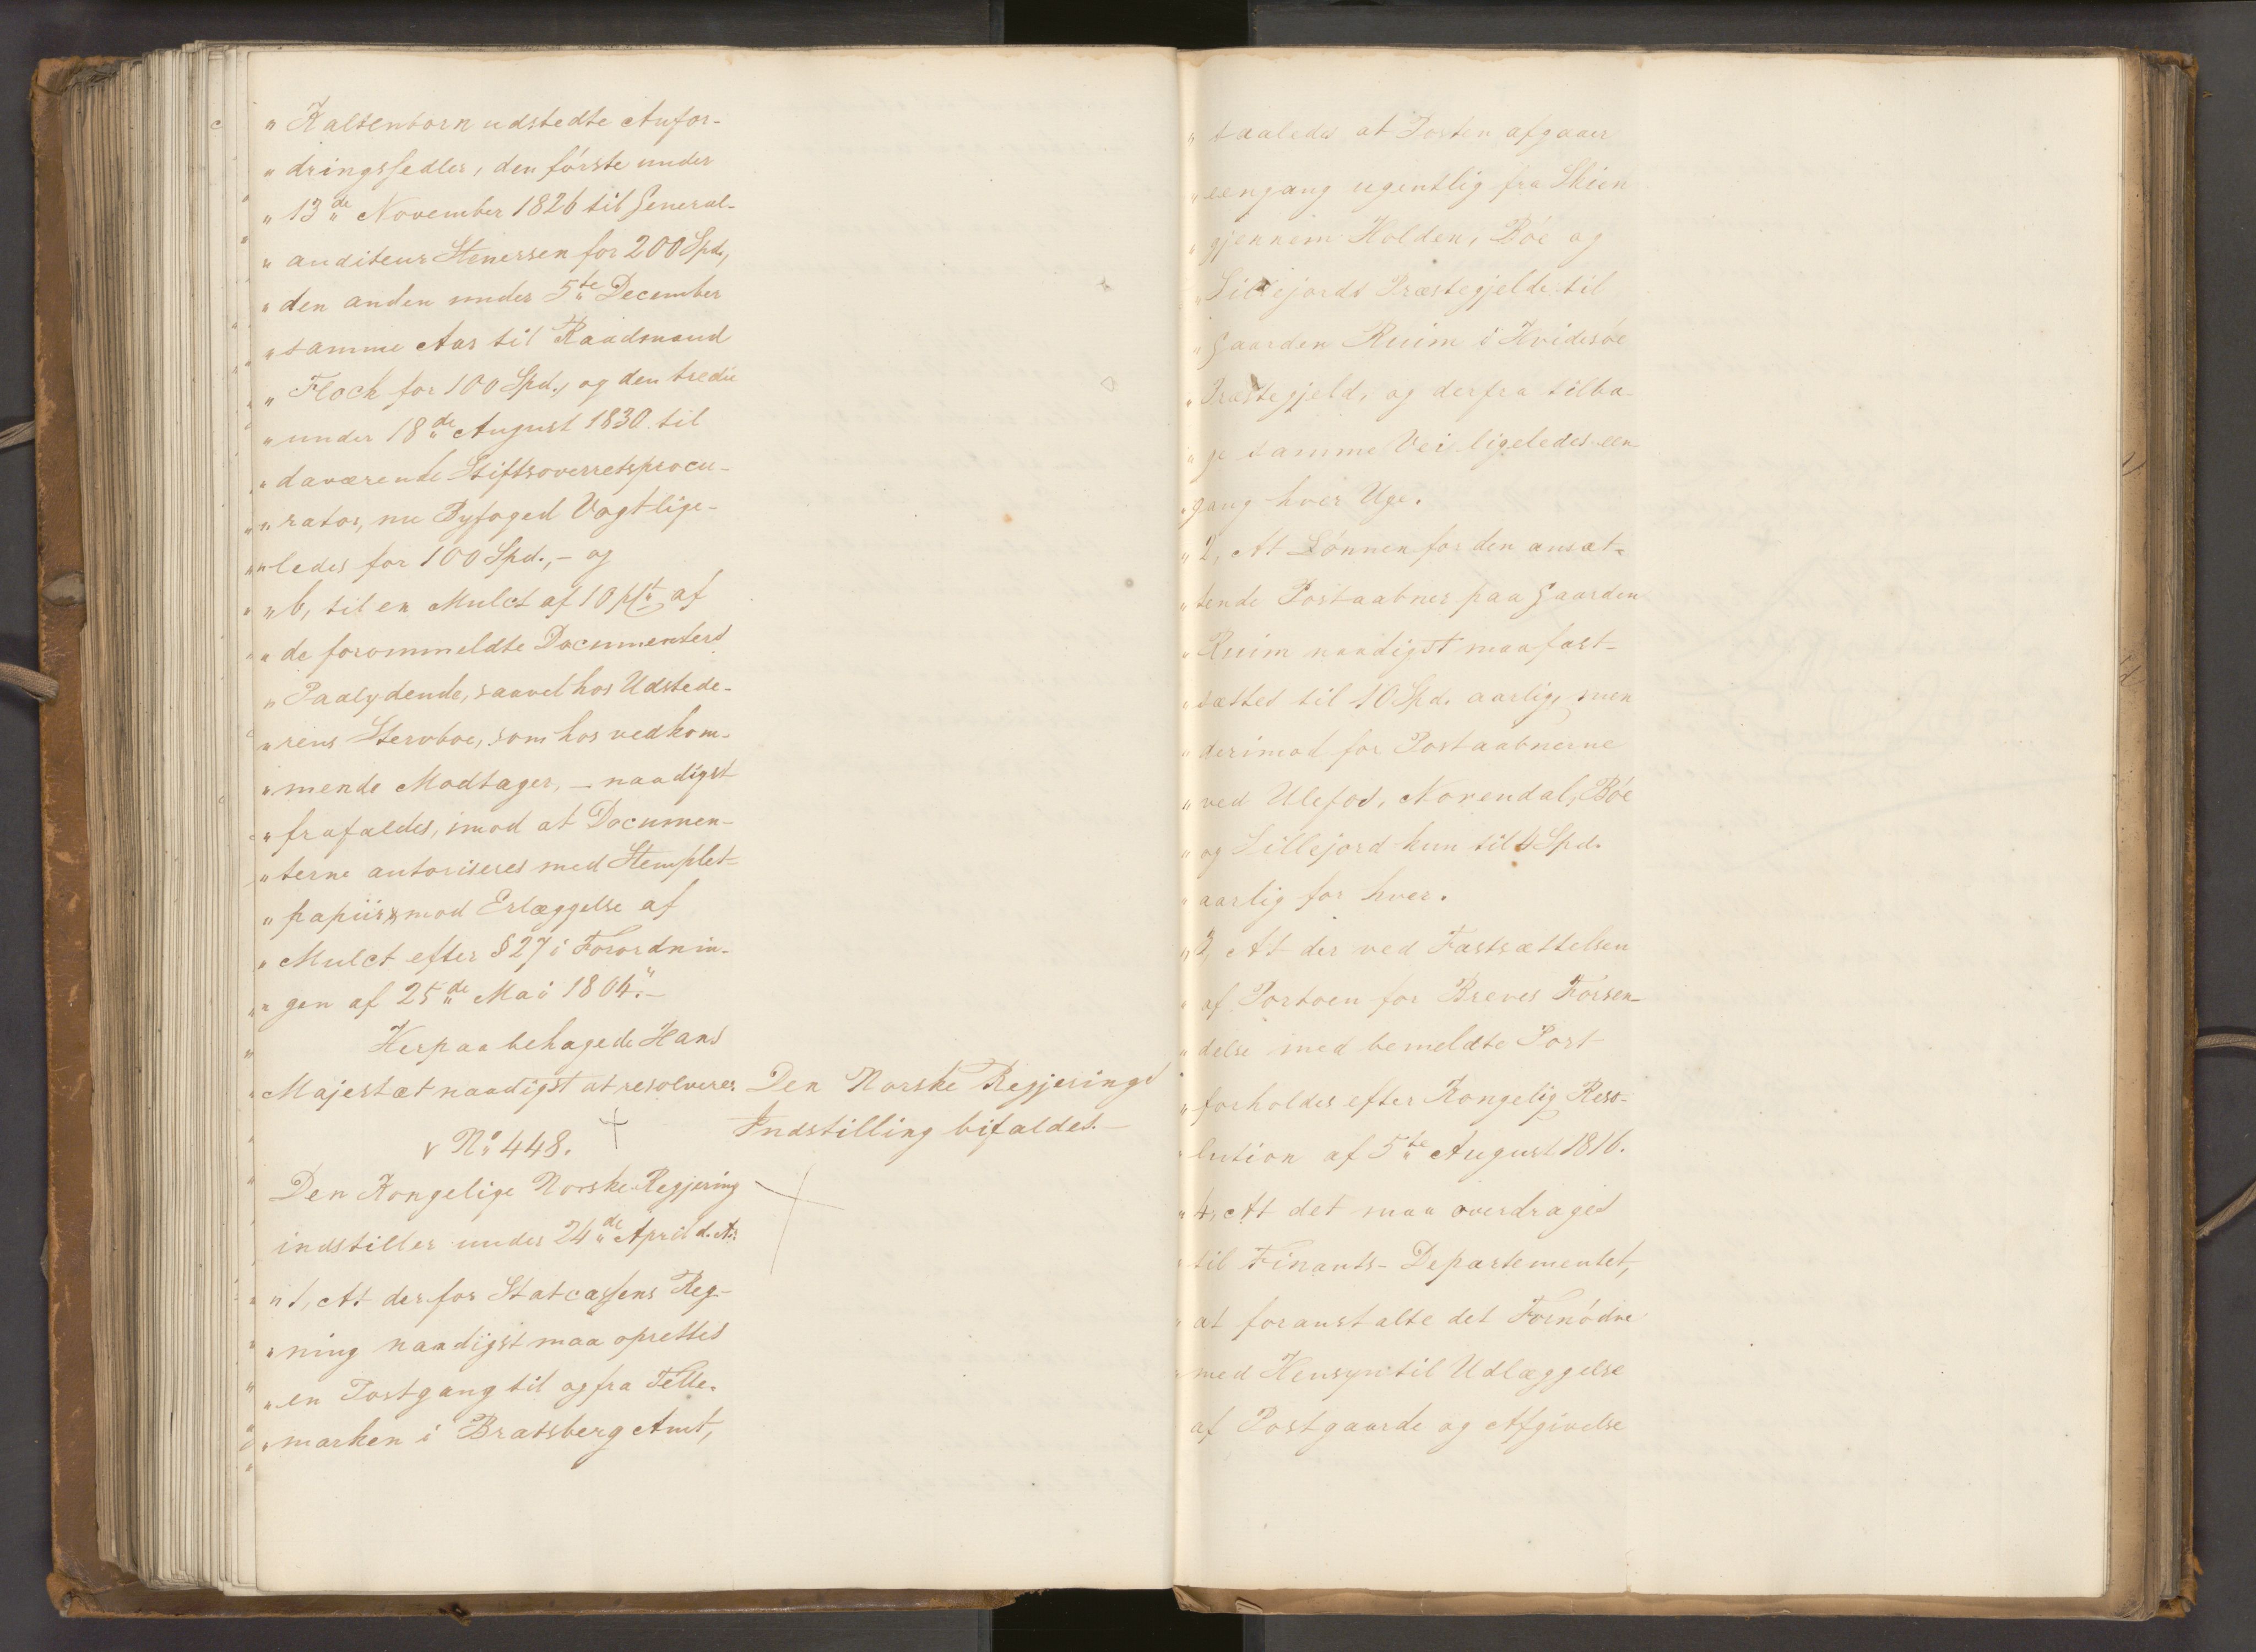 " Kaltenborn udstedte Anfor-
" dringssedler, den første under
" 13de November 1826 til General-
" auditeur Stenersen for 200 Spd.,
" den anden under 5te December
" samme Aar til Raadmand
" Floch for 100 Spd., og den tredie
" under 18de August 1830 til
" daværende Stiftsoverretsprocu-
" rator, nu Byfoged Vogt lige-
" ledes for 100 Spd., - og
" b, til en Mulct af 10 pCt. af
" de forommeldte Documenters
" Paalydende, saavel hos Udstede-
" rens Stervboe, som hos vedkom-
" mende Modtager, - naadigst
" frafaldes, imod at Documen-
" terne autoriseres med Stemplet-
" papiir mod Erlæggelse af
" Mulct efter § 27 i Forordnin-
" gen af 25de Mai 1804." -
Herpaa behagede Hans
Majestæt naadigst at resolvere:
Den Norske Regjerings
Indstilling bifaldes. -
No 448.
Den Kongelige Norske Regjering
indstiller under 24de April d. A.:
" 1, At der for Statcassens Reg-
" ning naadigst maa oprettes
" en Postgang til og fra Telle-
" marken i Bratsberg Amt,
" saaledes at Posten afgaaer
" eengang ugentlig fra Skien
" gjennem Holden, Bøe og
" Sillejords Præstegjelde til
" Gaarden Ruim i Hvidesøe
" Præstegjeld, og derfra tilba-
" ge samme Vei ligeledes een-
" gang hver Uge.
" 2, At Lønnen for den ansæt-
" tende Postaabner paa Gaarden
" Ruim naadigst maa fast-
" sættes til 10 Spd. aarlig, men
" derimod for Postaabnerne
" ved Ulefos, Norendal, Bøe
" og Sillejord kun til 4 Spd.
" aarlig for hver.
" 3, At der ved Fastsættelsen
" af Portoen for Breves Forsen-
" delse med bemeldte Post
" forholdes efter Kongelig Reso-
" lution af 5te August 1816.
" 4, At det maa overdrages
" til Finants-Departementet,
" at foranstalte det Fornødne
" med Hensyn til Udlæggelse
af Postgaarde og Afgivelse